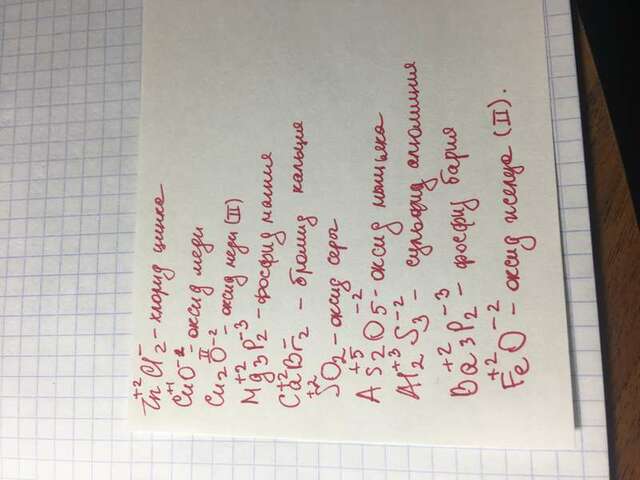 Zn⁺²Cl₂⁻ – хлорид цинка
Cu⁺¹O⁻² – оксид меди
Cu₂ᴵᴵO⁻² – оксид меди (II)
Mg₃⁺²P₂⁻³ – фосфид магния
Ca⁺²Br₂⁻ – бромид кальция
S⁺²O₂ – оксид серы
As₂⁺⁵O₅⁻² – оксид мышьяка
Al₂⁺³S₃⁻² – сульфид алюминия
Ba₃⁺²P₂⁻³ – фосфид бария
Fe⁺²O⁻² – оксид железа (II).